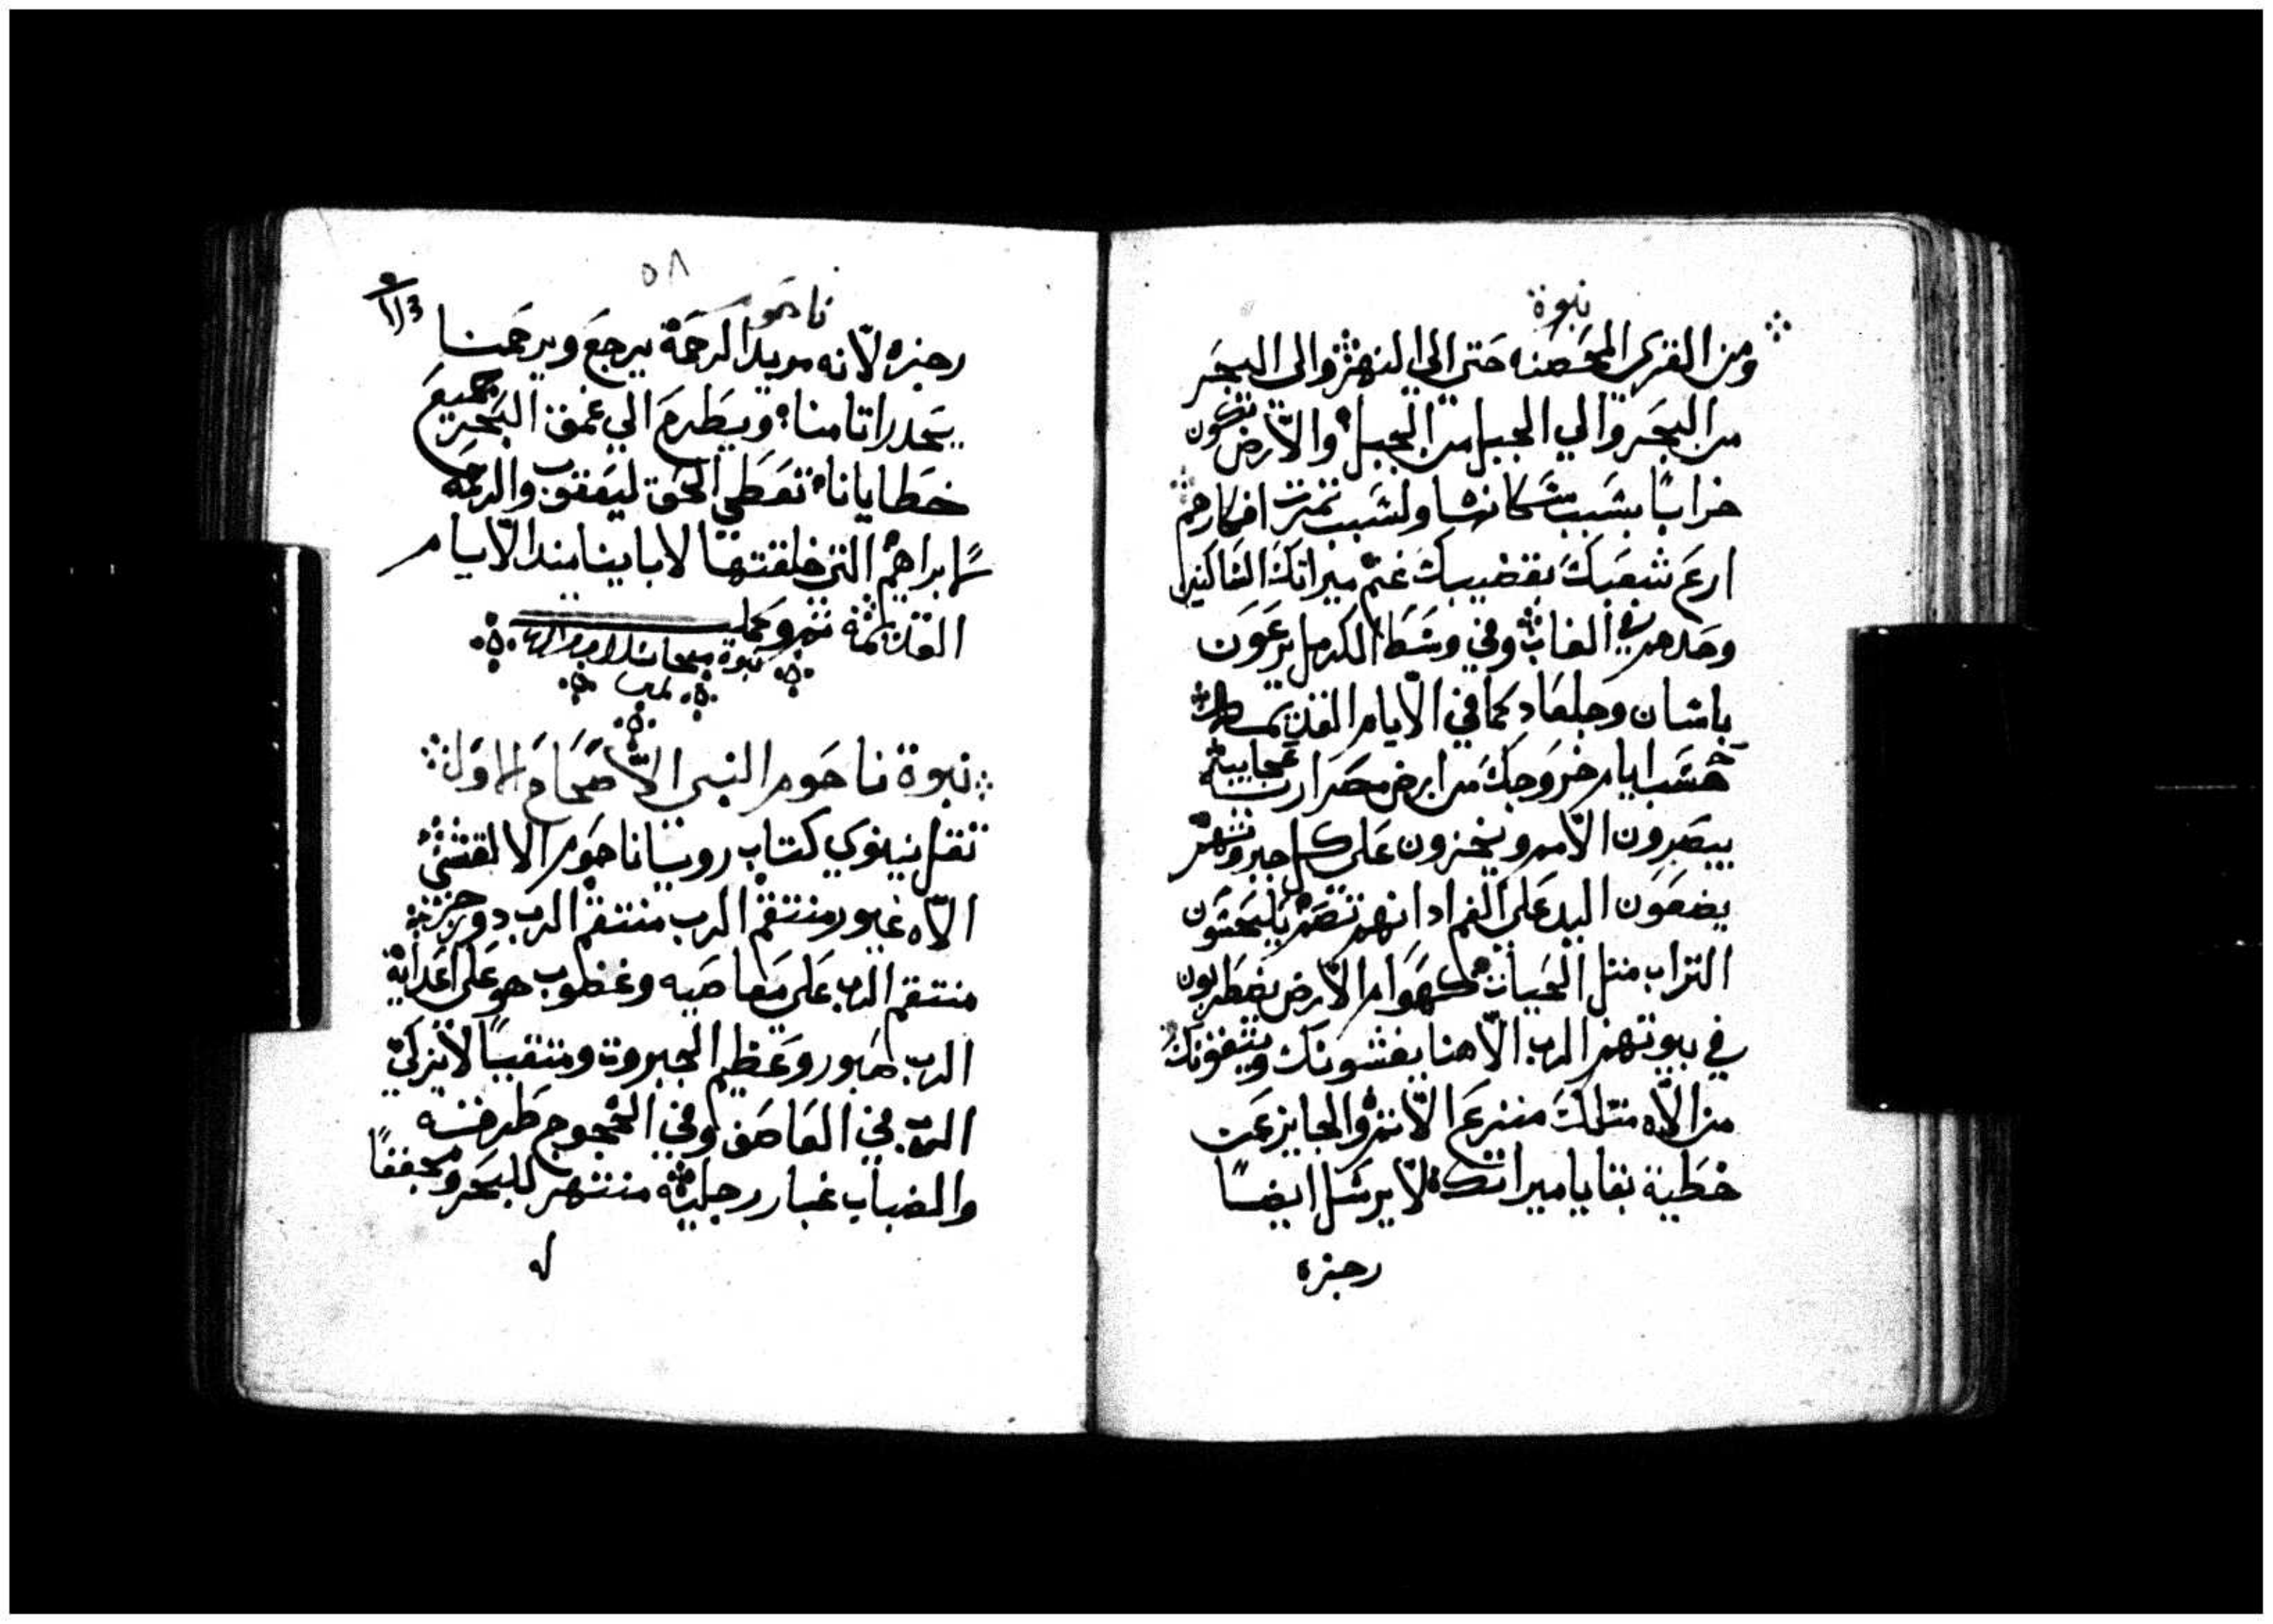 نبوة
ومن القرى المحصنه حتى الى النهر والى البحر
من البحر والي الجبل من الجبل والارض تكون
خرابًا بسبب سكانها ولسبب تمرت افكارهم
ارع شعبك بقضيبك غنم ميراتك الساكنين
وحدهم في الغاب وفي وسط الكرمل يرعون
باشان وجلعاد كما في الايام القديمه
حسب ايام خروجك من ارض مصر اريه عجايب
يبصرون الامم ويخزون على كل جبروتهم
يضعون اليد على الفم اذانهم تصم يلحسون
التراب متل الحيات كهوام الارض يضطربون
في بيوتهم الرب الاهنا يخشونك ويتقونك
من الاه متلك منزع الاثم والجايز عن
خطية بقايا ميراتك لا يرسل ايضًا
رجزه
٥٨
ناحوم
رجزه لانه مريد الرحمة يرجع ويرحمنا
يحدر اتامنا ويطرح الي عمق البحر جميع
خطايانا تعطي الحق ليعقوب والرحمه
لابراهيم التى حلفتها لاباينا مند الايام
القديمه تم وكمل
نبوة ميخا
نبوة ناحوم النبي الاصحاح الاول
تقل نينوي كتاب رويا ناحوم الالقشي
الاه غيور منتقم الرب منتقم الرب دو رجز
منتقم الرب على معاصيه وغظوب هو على اعدايه
الرب صبور وعظيم الجبروت ومنقيًا لا يزكي
الرب في العاصف وفي العجوج طرقه
والضباب غبار رجليه منتهر للبحر ومجففًا
له